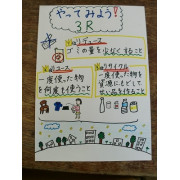 やってみよう!
3R
リデュース
ゴミの量を少なくすること
リユース
一度使った物
を何度も使うこと
リサイクル
一度使った物を
資源にもどして
使い品を作ること